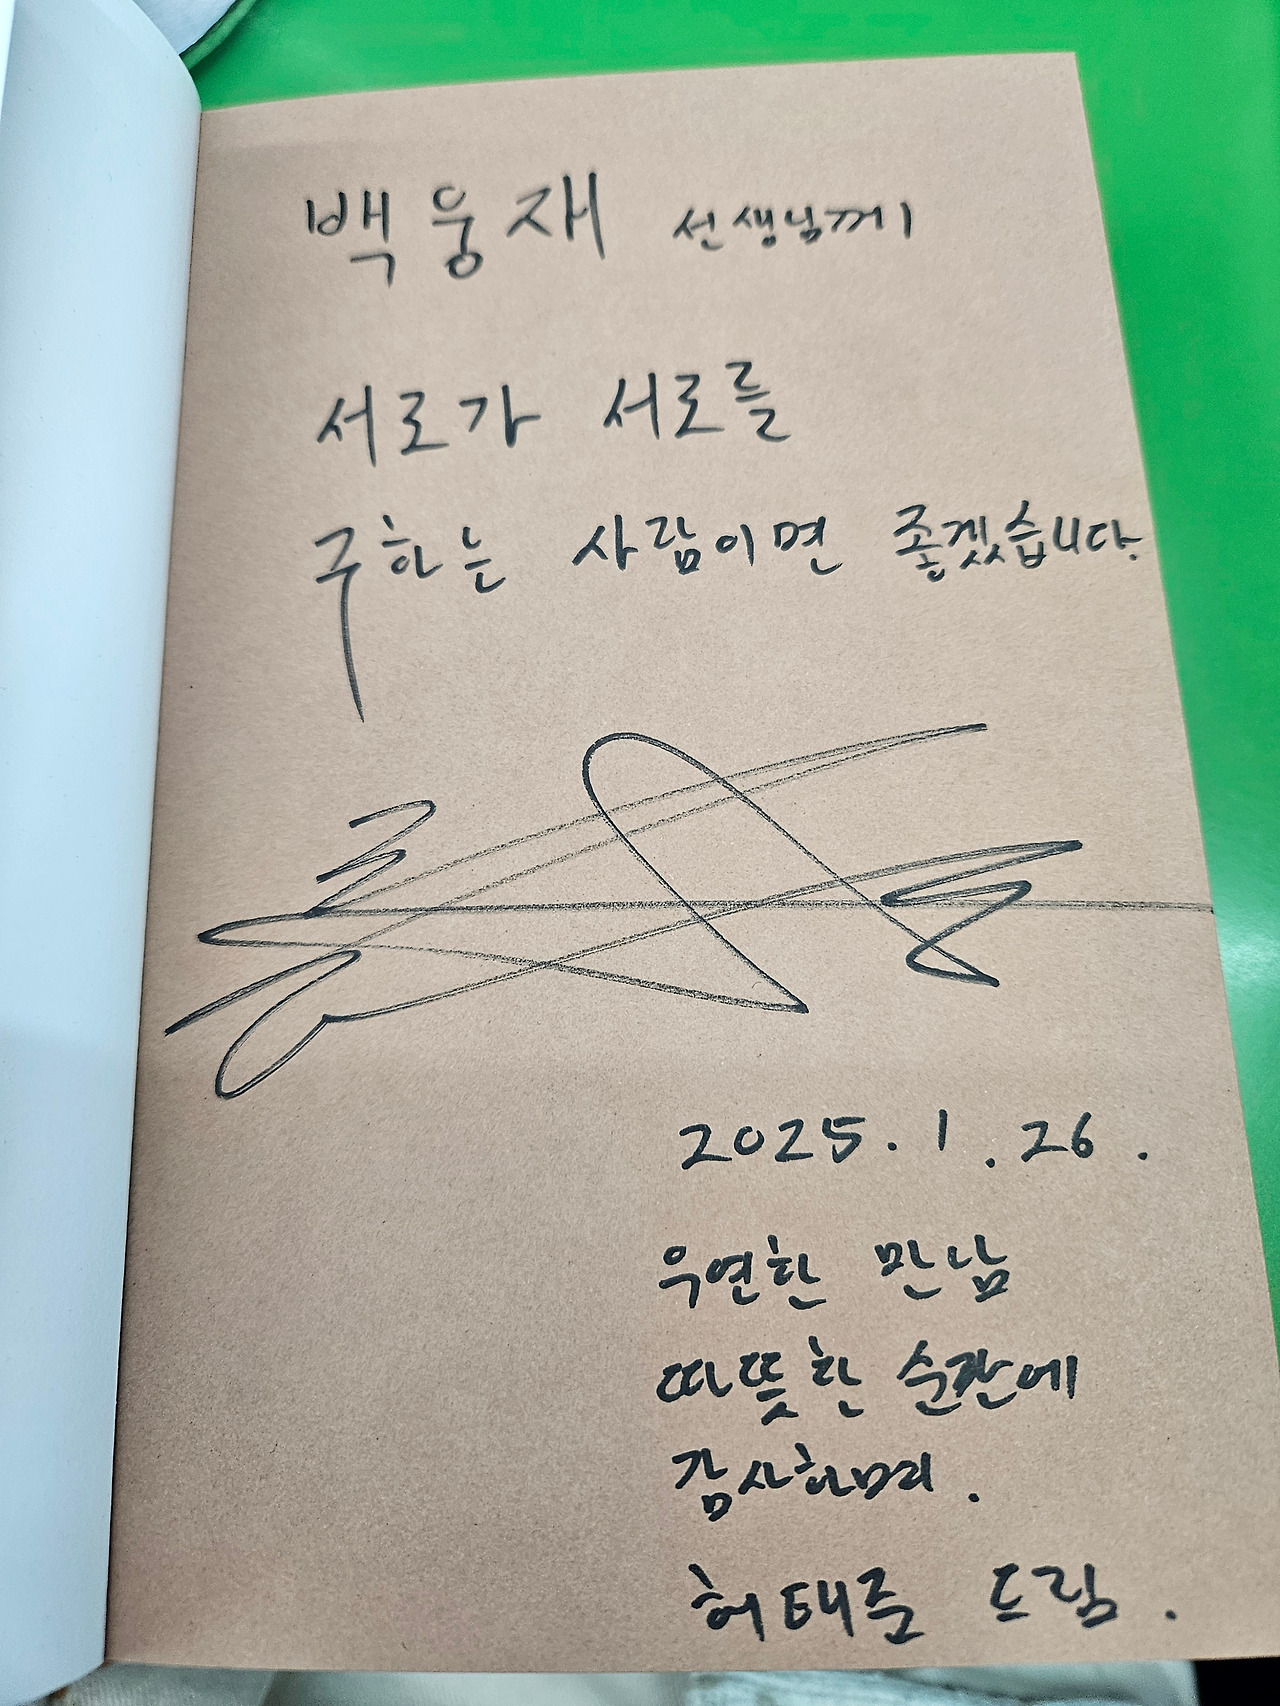 백웅재 선생님께
서로가 서로를
구하는 사람이면 좋겠습니다.
2025. 1. 26.
우연한 만남
따뜻한 순간에
감사하며.
허태준 드림.